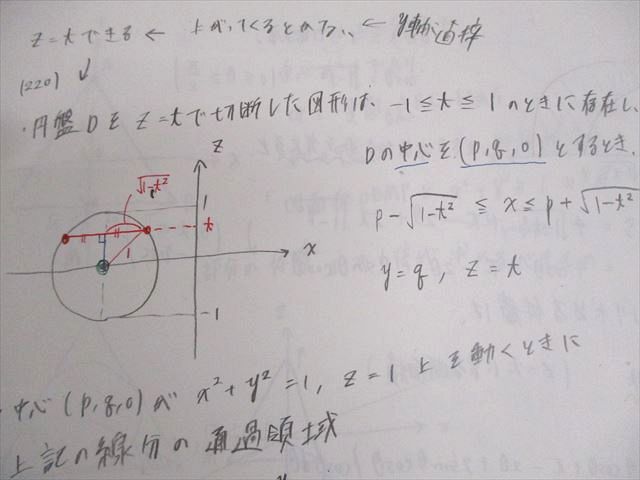 z=tできる ← 上がってくるとかない、 ← y軸が直接
(220) ↓
・円盤Dをz=tで切断した図形は、-1≦t≦1のときに存在し、
Dの中心を(p,q,0)とするとき、
p-√1-t² ≦ x ≦ p+√1-t²
y=q, z=t
z
√1-t²
1
t
1
x
-1
・中心(p,q,0)が x²+y²=1, z=1 上を動くときに
上記の線分の通過領域